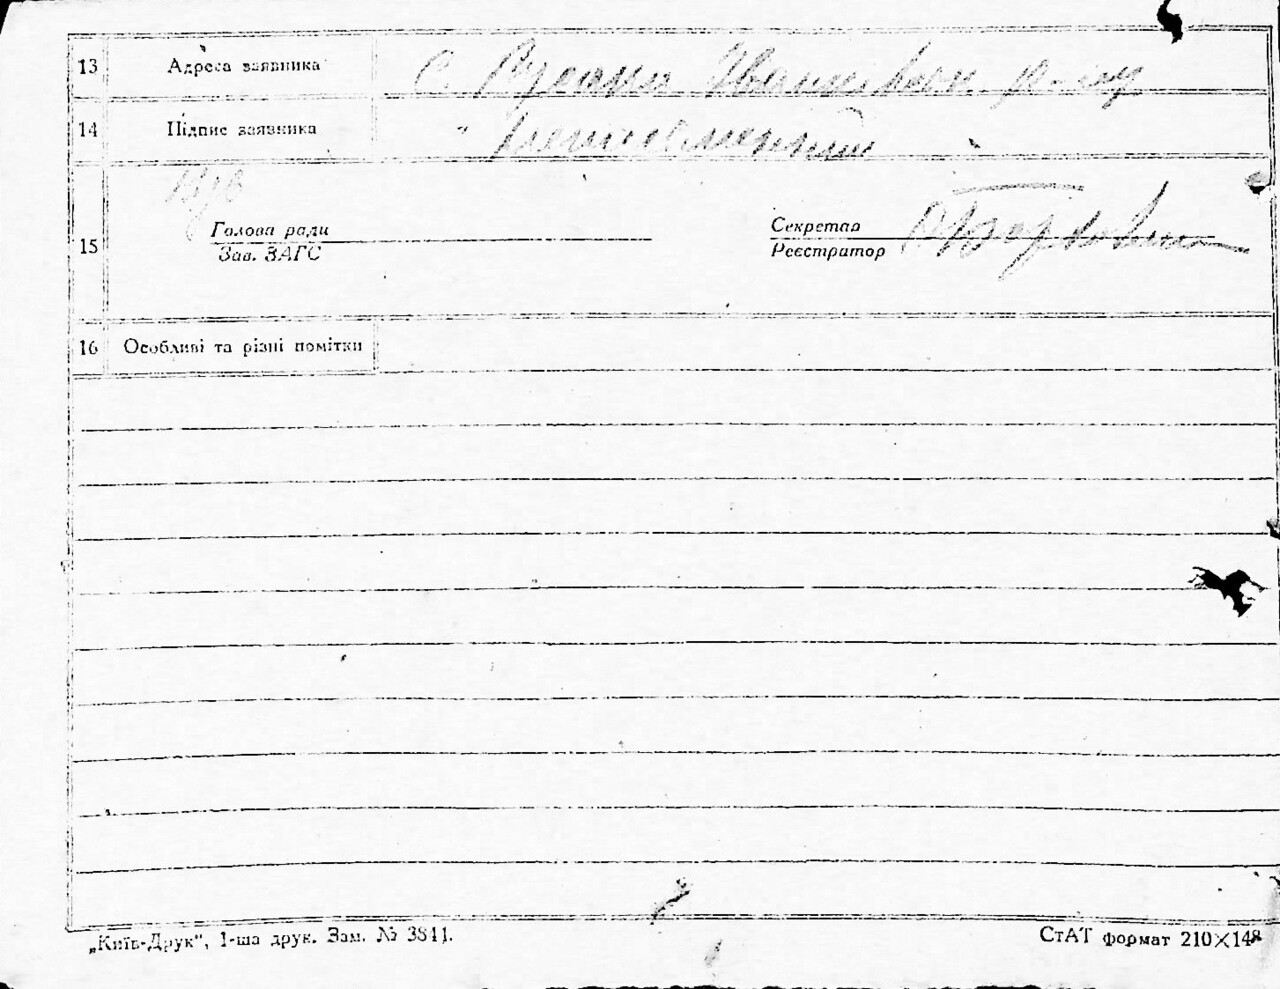 13 Адреса заявника с. Русани Іванківськ. р-ну
14 Підпис заявника
15 Голова ради
Зав. ЗАГС
Секретар
Реєстратор
16 Особливі та різні помітки
„Київ-Друк", 1-ша друк. Зам. № 3841.
СтАТ формат 210×148